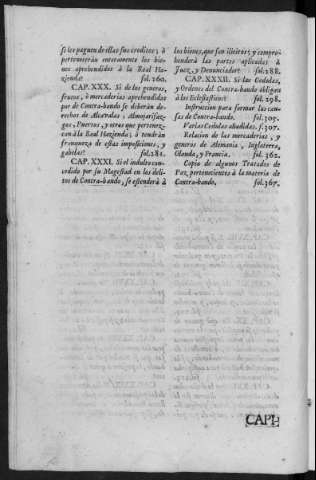 se les paguen de ellas sus creditos; ò
pertenecerán enteramente los bienes
aprehendidos à la Real Hazienda?
fol. 260.
CAP. XXX. Si de los generos,
frutos, ò mercaderias aprehendidos
por de Contra-bando se deberán derechos
de Alcavalas, Almojarifazgos,
Puertos, y otros que pertenezcan
à la Real Hazienda; ò tendrán
franqueza de estas imposiciones, y
gabelas? fol. 281.
CAP. XXXI. Si el indulto concedido
por su Magestad en los delitos
de Contra-bando, se estenderá à
los bienes, que son illicitos; y comprehenderá
las partes aplicadas à
Juez, y Denunciador? fol. 288.
CAP. XXXII. Si las Cedulas,
y Ordenes del Contra-bando obliguen
à los Eclesiasticos? fol. 298.
Instruccion para formar las causas
de Contra-bando. fol. 305.
Varias Cedulas añadidas. f. 307.
Relacion de las mercaderias, y
generos de Alemania, Inglaterra,
Olanda, y Francia. fol. 362.
Copia de algunos Tratados de
Paz, pertenecientes à la materia de
Contra-bando. fol. 367.
CAPI-